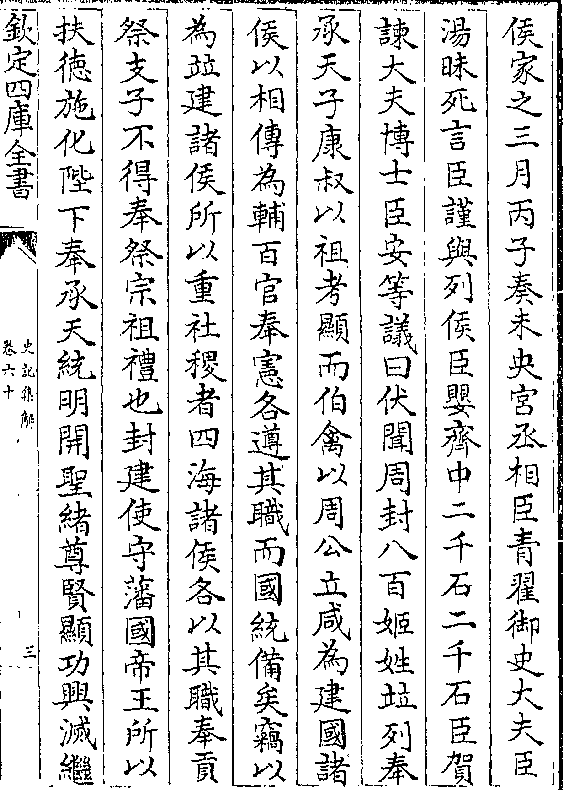 侯家之三月丙子奏未央宮丞相臣青翟御史大夫臣
湯昧死言臣謹與列侯臣嬰齊中二千石二千石臣賀
諫大夫博士臣安等議曰伏聞周封八百姬姓竝列奉
承天子康叔以祖考顯而伯禽以周公立咸為建國諸
侯以相傳為輔百官奉憲各遵其職而國統備矣竊以
為竝建諸侯所以重社稷者四海諸侯各以其職奉貢
祭支子不得奉祭宗祖禮也封建使守藩國帝王所以
扶德施化陛下奉承天統明開聖緒尊賢顯功興滅繼
欽定四庫全書
史記集解
卷六十
三